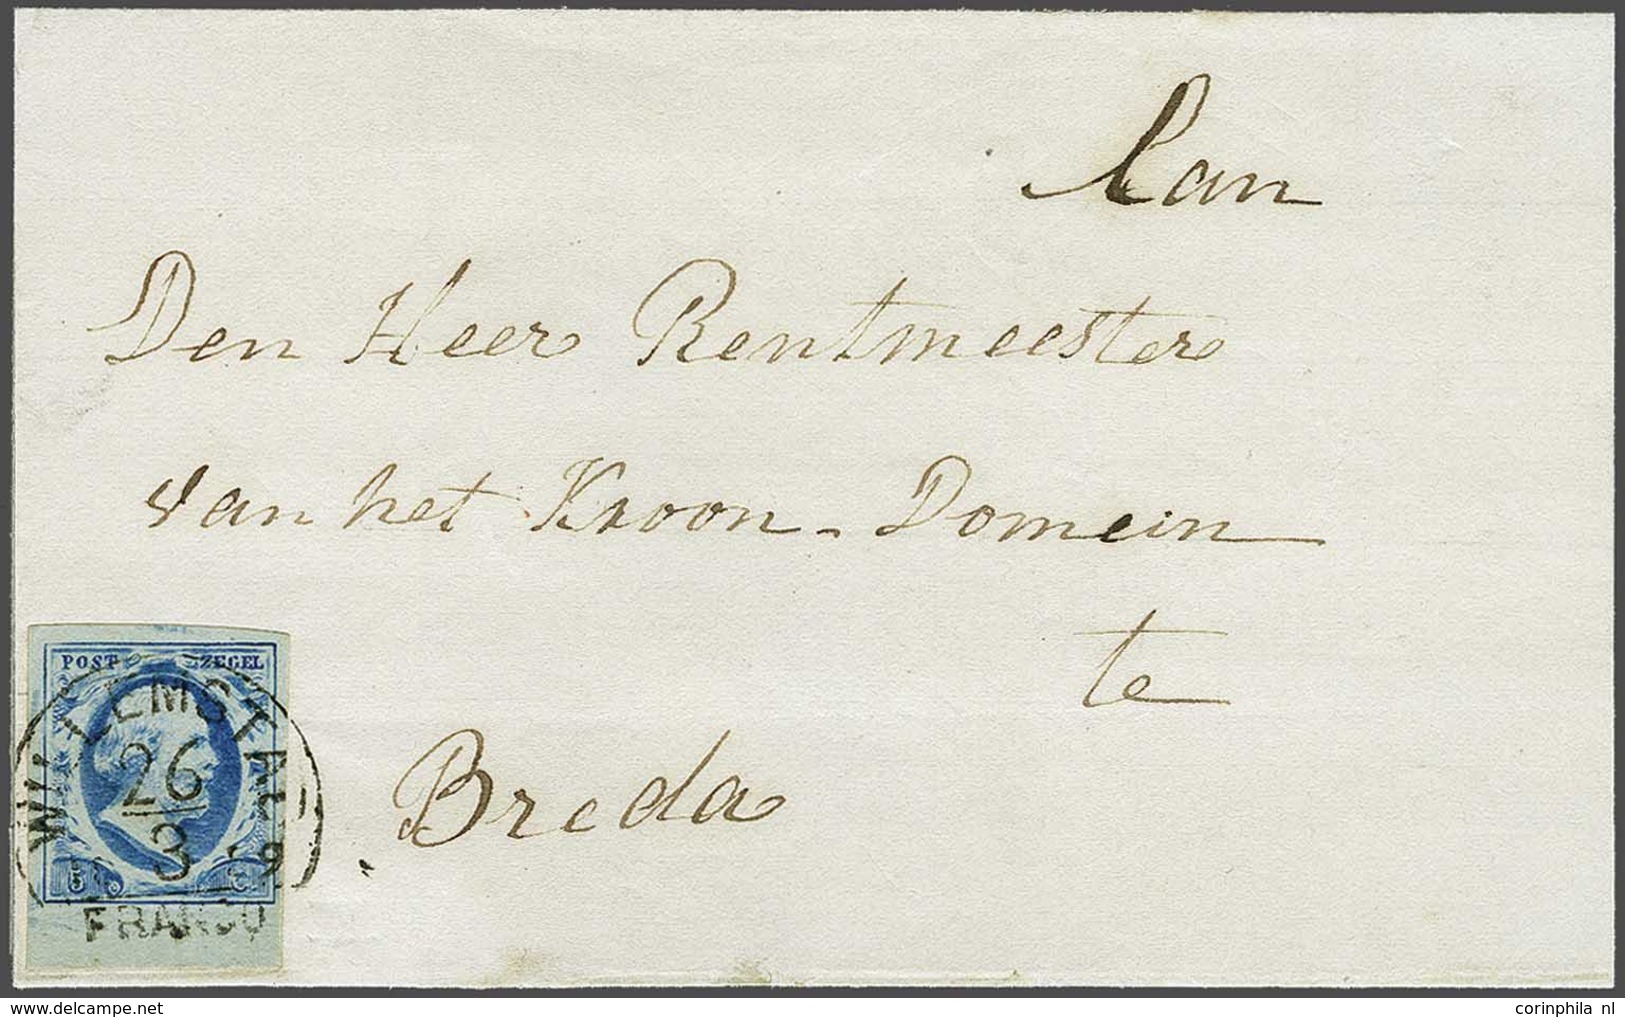 Aan
Den Heer Rentmeester
van het Kroon-Domein
te
Breda
POST ZEGEL
WILLEMSTAD
26
3
5
FRANCO
corinphila nl